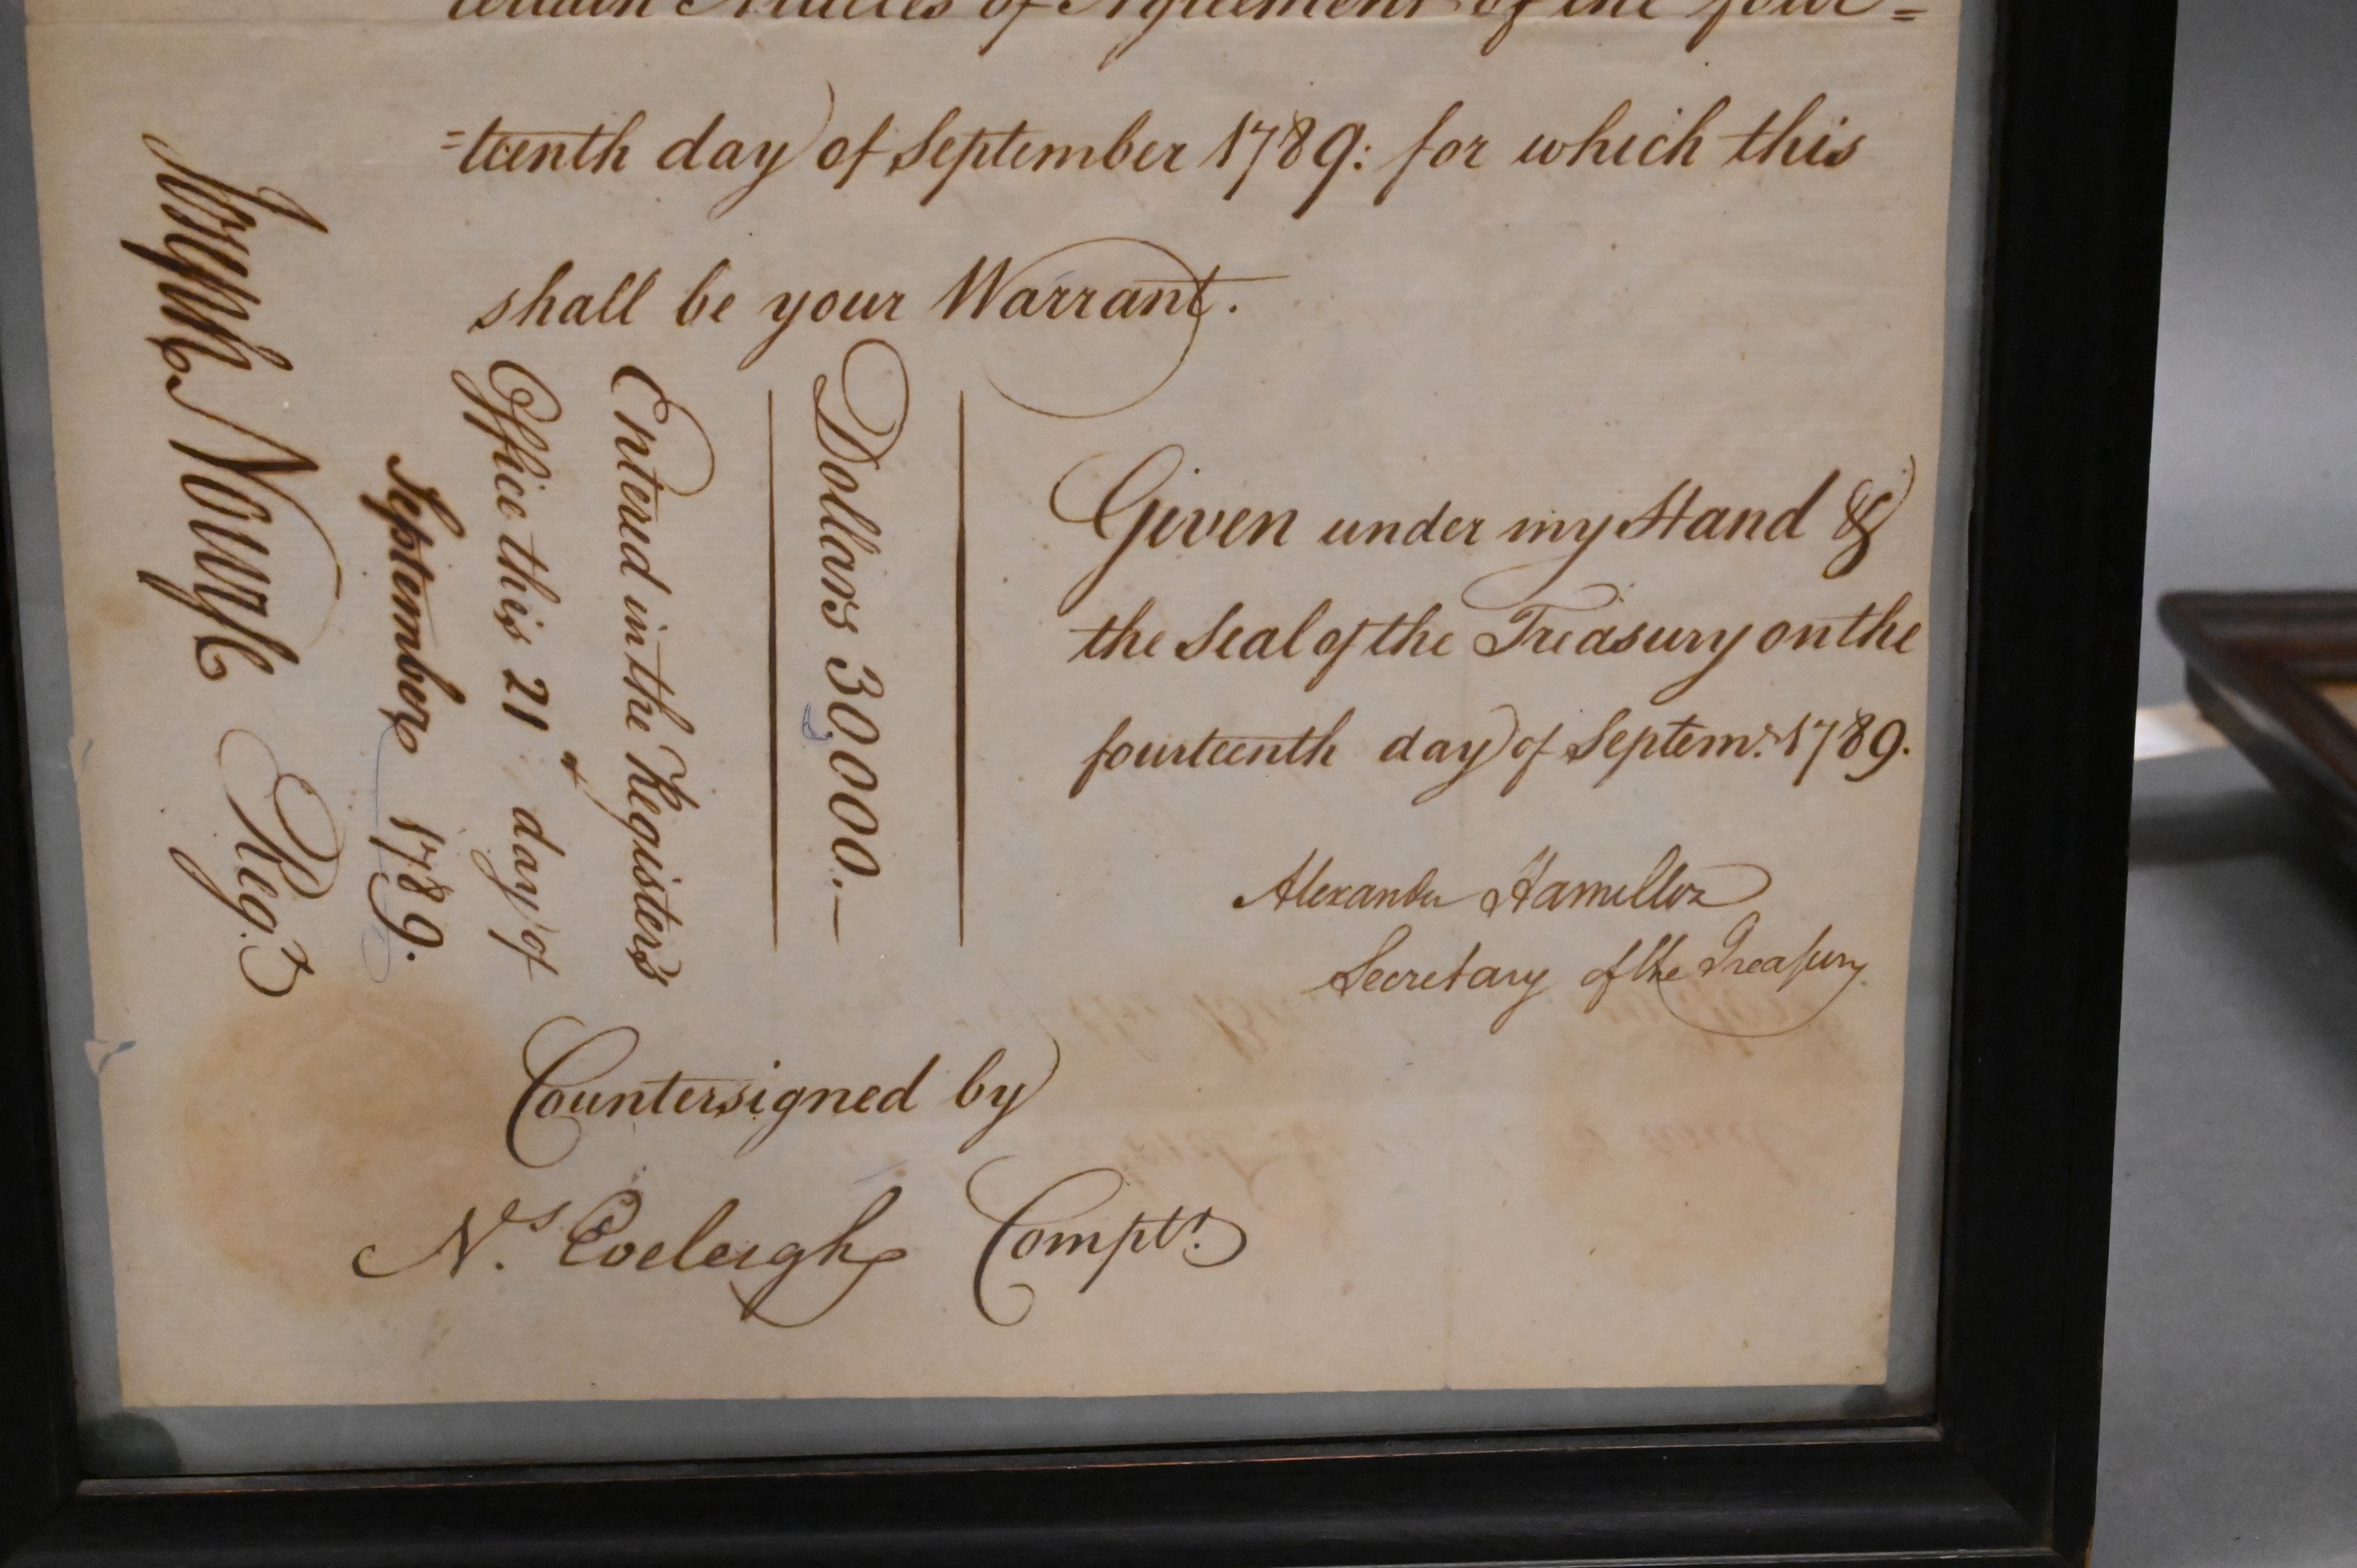 certain Articles of Agreement of the four=
=teenth day of September 1789: for which this
shall be your Warrant.
Given under my Hand &
the Seal of the Treasury on the
fourteenth day of Septemr. 1789.
Alexander Hamilton
Secretary of the Treasury
Dollars 30,000.—
Entered in the Register's
Office this 21st day of
September 1789.
Joseph Nourse Regr.
Countersigned by
Nics. Eveleigh Comptr.